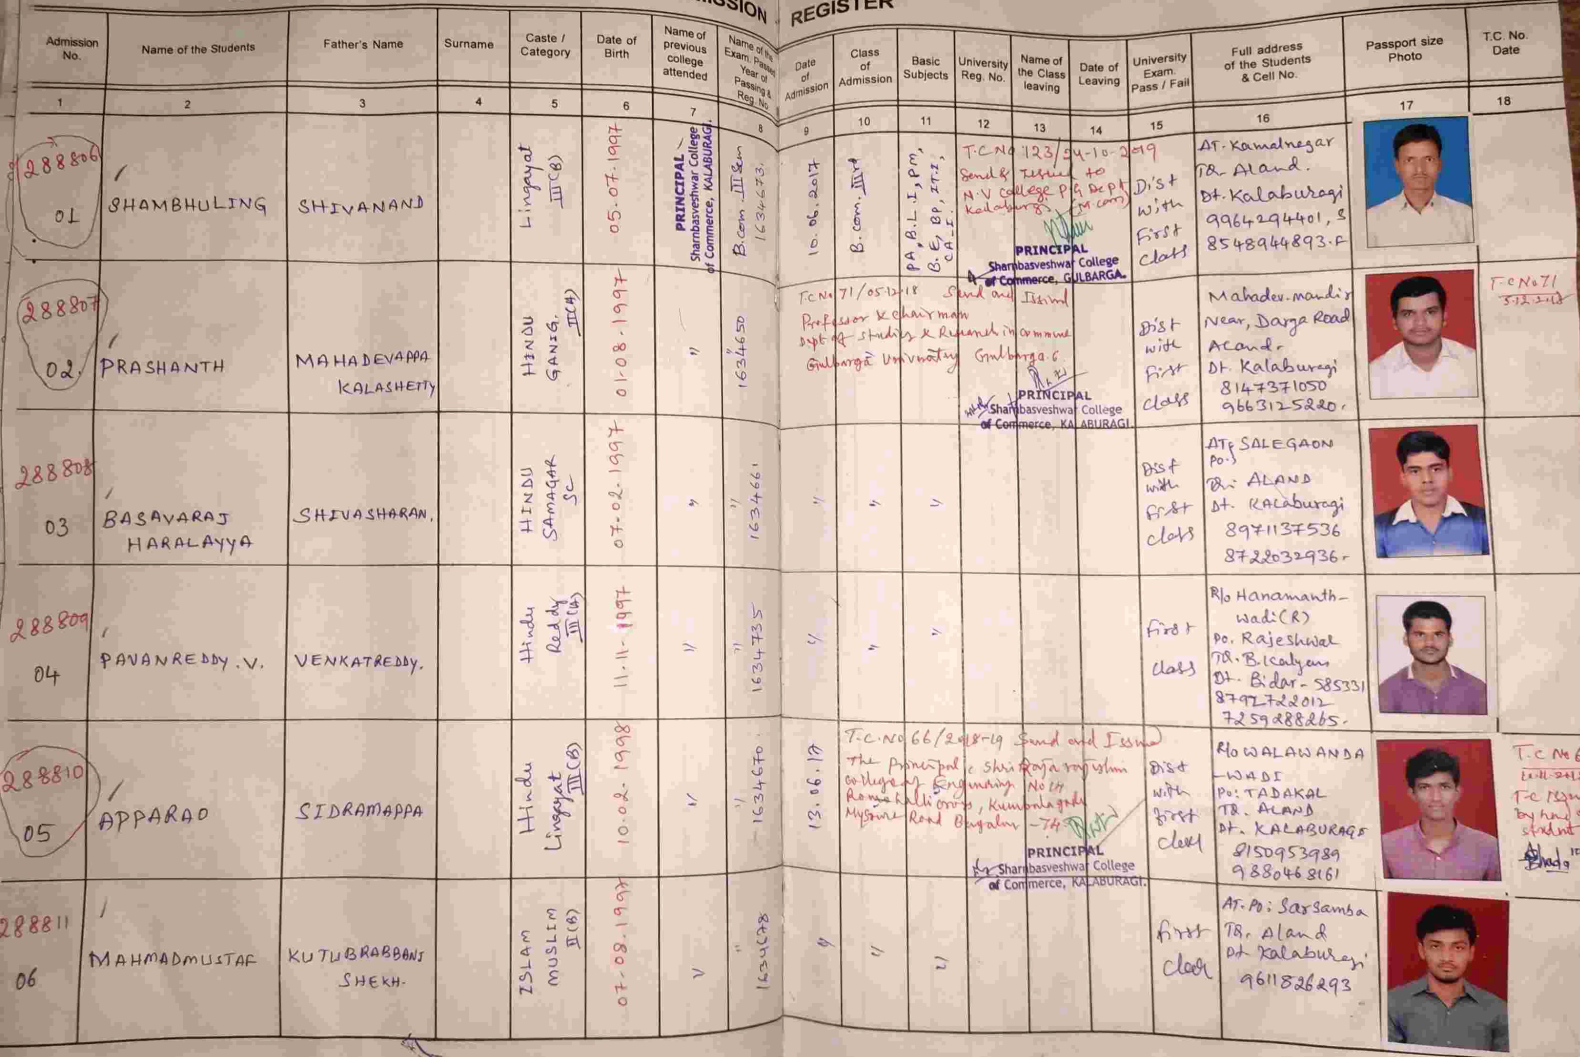 SSION REGISTER
Admission No.
Name of the Students
Father's Name
Surname
Caste / Category
Date of Birth
Name of previous college attended
Name of the Exam. Passed Year of Passing & Reg. No.
Date of Admission
Class of Admission
Basic Subjects
University Reg. No.
Name of the Class leaving
Date of Leaving
University Exam. Pass / Fail
Full address of the Students & Cell No.
Passport size Photo
T.C. No. Date
1 2 3 4 5 6 7 8 9 10 11 12 13 14 15 16 17 18
288806
01
SHAMBHULING
SHIVANAND
Lingayat
III(B)
05.07.1997
PRINCIPAL
Sharnbasveshwar College
of Commerce, KALABURAGI.
B.com III Sem
1634673.
10.06.2017
B.com. IIIrd
PA, B.L.I, PM,
B.E, BP, IT.I,
CA-I.
T.C No 123/24-10-2019
Send & Issued to
N.V College P G Dept
Kalaburgi (M com)
PRINCIPAL
Sharnbasveshwar College
of Commerce, GULBARGA.
Dist
with
First
class
AT- Kamalnagar
TQ. Aland.
Dt. Kalaburagi
9964294401, S
8548944893.F
288807
02.
PRASHANTH
MAHADEVAPPA
KALASHETTY
HINDU
GANIG.
II(A)
01.08.1997
"
"
1634650
T.C No 71/05-12-18 Send and Issued
Professor & chairman
Dept of studies & Research in commerce
Gulbarga University Gulbarga.6
PRINCIPAL
Sharnbasveshwar College
of Commerce, KALABURAGI.
Dist
with
First
class
Mahadev.mandir
Near, Darga Road
Aland.
Dt. Kalaburagi
8147371050
9663125220.
T-C No 71
288808
03
BASAVARAJ
HARALAYYA
SHIVASHARAN.
HINDU
SAMAGAR
SC
07.02.1997
"
"
1634661
"
"
"
Dist
with
First
class
AT SALEGAON
Po.
TQ: ALAND
Dt. KALaburagi
8971137536
8722032936-
288809
04
PAVANREDDY.V.
VENKATREDDY.
Hindu
Reddy
III(A)
11.11.1997
"
"
1634735
"
"
"
First
class
R/o Hanamanth-
wadi(R)
Po. Rajeshwar
TQ. B.Kalyan
Dt. Bidar-585331
8792722012
7259288265.
288810
05
APPARAO
SIDRAMAPPA
Hindu
Lingayat
III(B)
10.02.1998
"
"
1634670.
13.06.17
T.C.No 66/2018-19 Send and Issued
The principal, Shri Raja rajeshwari
college of Engineering No 14
Ramohalli cross, Kumbalagodu
Mysure Road Bangalur -74
PRINCIPAL
Sharnbasveshwar College
of Commerce, KALABURAGI.
Dist
with
First
class
R/o WALAWANDA
-WADI
Po: TADAKAL
TQ. ALAND
Dt. KALABURAGI
8150953989
9880468161
T.C No 6
T-C Issu
by hand
student
288811
06
MAHMADMUSTAF
KUTUBRABBANI
SHEKH.
ISLAM
MUSLIM
II(B)
07.08.1997
"
"
1634678
"
"
"
First
class
AT. Po: Sarsamba
TQ. Aland
Dt Kalaburagi
9611826293